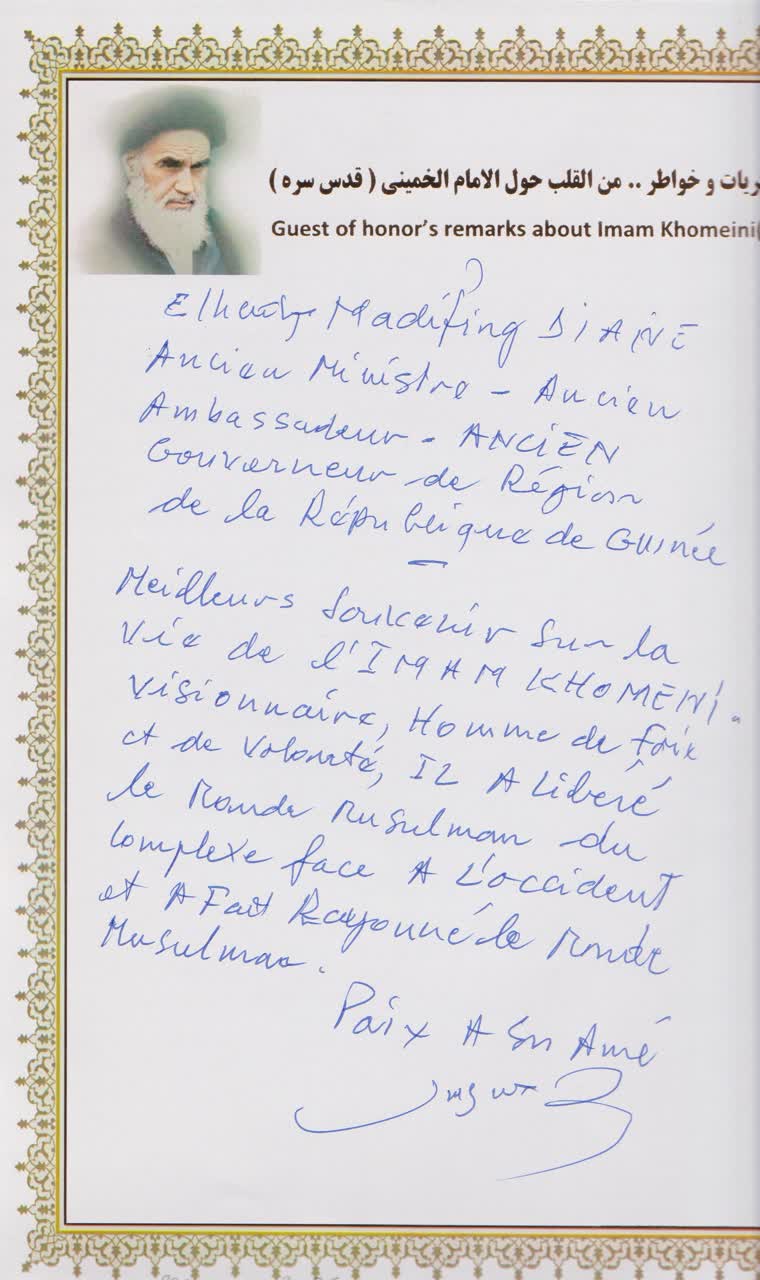 ريات و خواطر .. من القلب حول الامام الخمينى ( قدس سره )
Guest of honor's remarks about Imam Khomeini(
Elhadj Madifing DIANE
Ancien Ministre - Ancien
Ambassadeur - ANCIEN
Gouverneur de Région
de la République de Guinée
Meilleurs Souvenir Sur la
Vie de l'IMAM KHOMENI.
Visionnaire, Homme de foix
et de Volonté, IL A Libéré
le Monde Musulman du
Complexe face A L'occident
et A Fait Rayonné le Monde
Musulman.
Paix A Son Amé